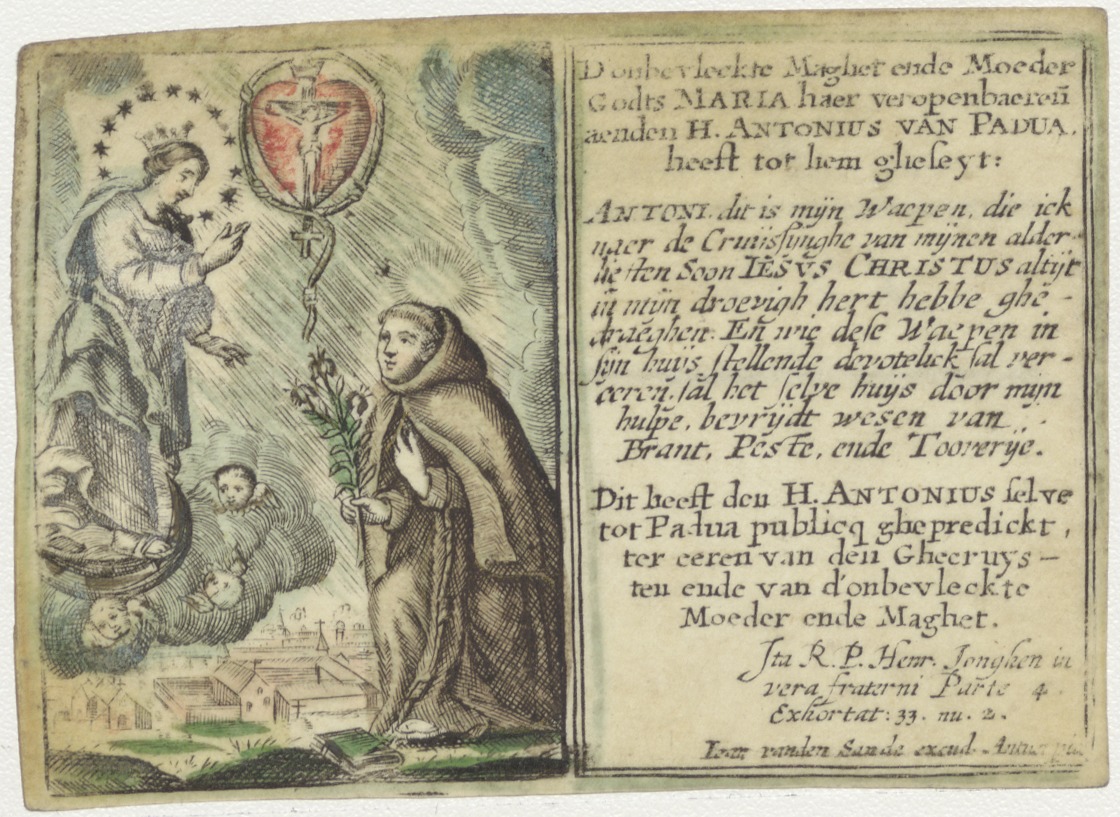 D'onbevleckte Maghet ende Moeder
Godts MARIA haer veropenbaereñ
aenden H. ANTONIUS VAN PADUA.
heeft tot hem gheseyt:
ANTONI. dit is mijn Waepen, die ick
naer de Cruijssijnghe van mijnen alder-
liefsten Soon IESVS CHRISTUS altijt
in mijn droevigh hert hebbe ghe-
draeghen. Eñ wie dese Waepen in
sijn huys stellende devotelick sal ver-
eeren, sal het selve huijs door mijn
hulpe, bevrijdt wesen van
Brant, Peste, ende Tooverije.
Dit heeft den H. ANTONIUS selve
tot Padua publicq ghepredickt,
ter eeren van den Ghecruys-
ten ende van d'onbevleckte
Moeder ende Maghet.
Ita R. P. Henr. Jonghen in
vera fraterni Parte 4.
Exhortat: 33. nu. 2.
Ioan vanden Sande excud. Antuerpiæ